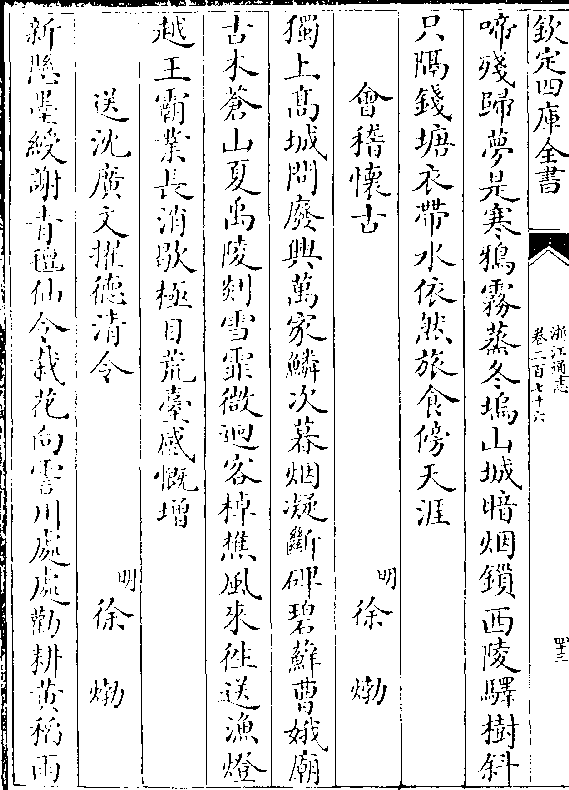 欽定四庫全書
浙江通志
卷二百七十六
四十三
啼殘歸夢是寒鴉霧蒸冬塢山城暗烟鎖西陵驛樹斜
只隔錢塘衣帶水依然旅食傍天涯
會稽懷古 明 徐 𤊹
獨上髙城問廢興萬家鱗次暮烟凝斷碑碧蘚曹娥廟
古木蒼山夏禹陵剡雪霏微迴客棹樵風來徃送漁燈
越王霸業長消歇極目荒臺感慨增
送沈廣文擢德清令 明 徐 𤊹
新懸墨綬謝青氊仙令栽花向霅川處處勸耕黄稻雨